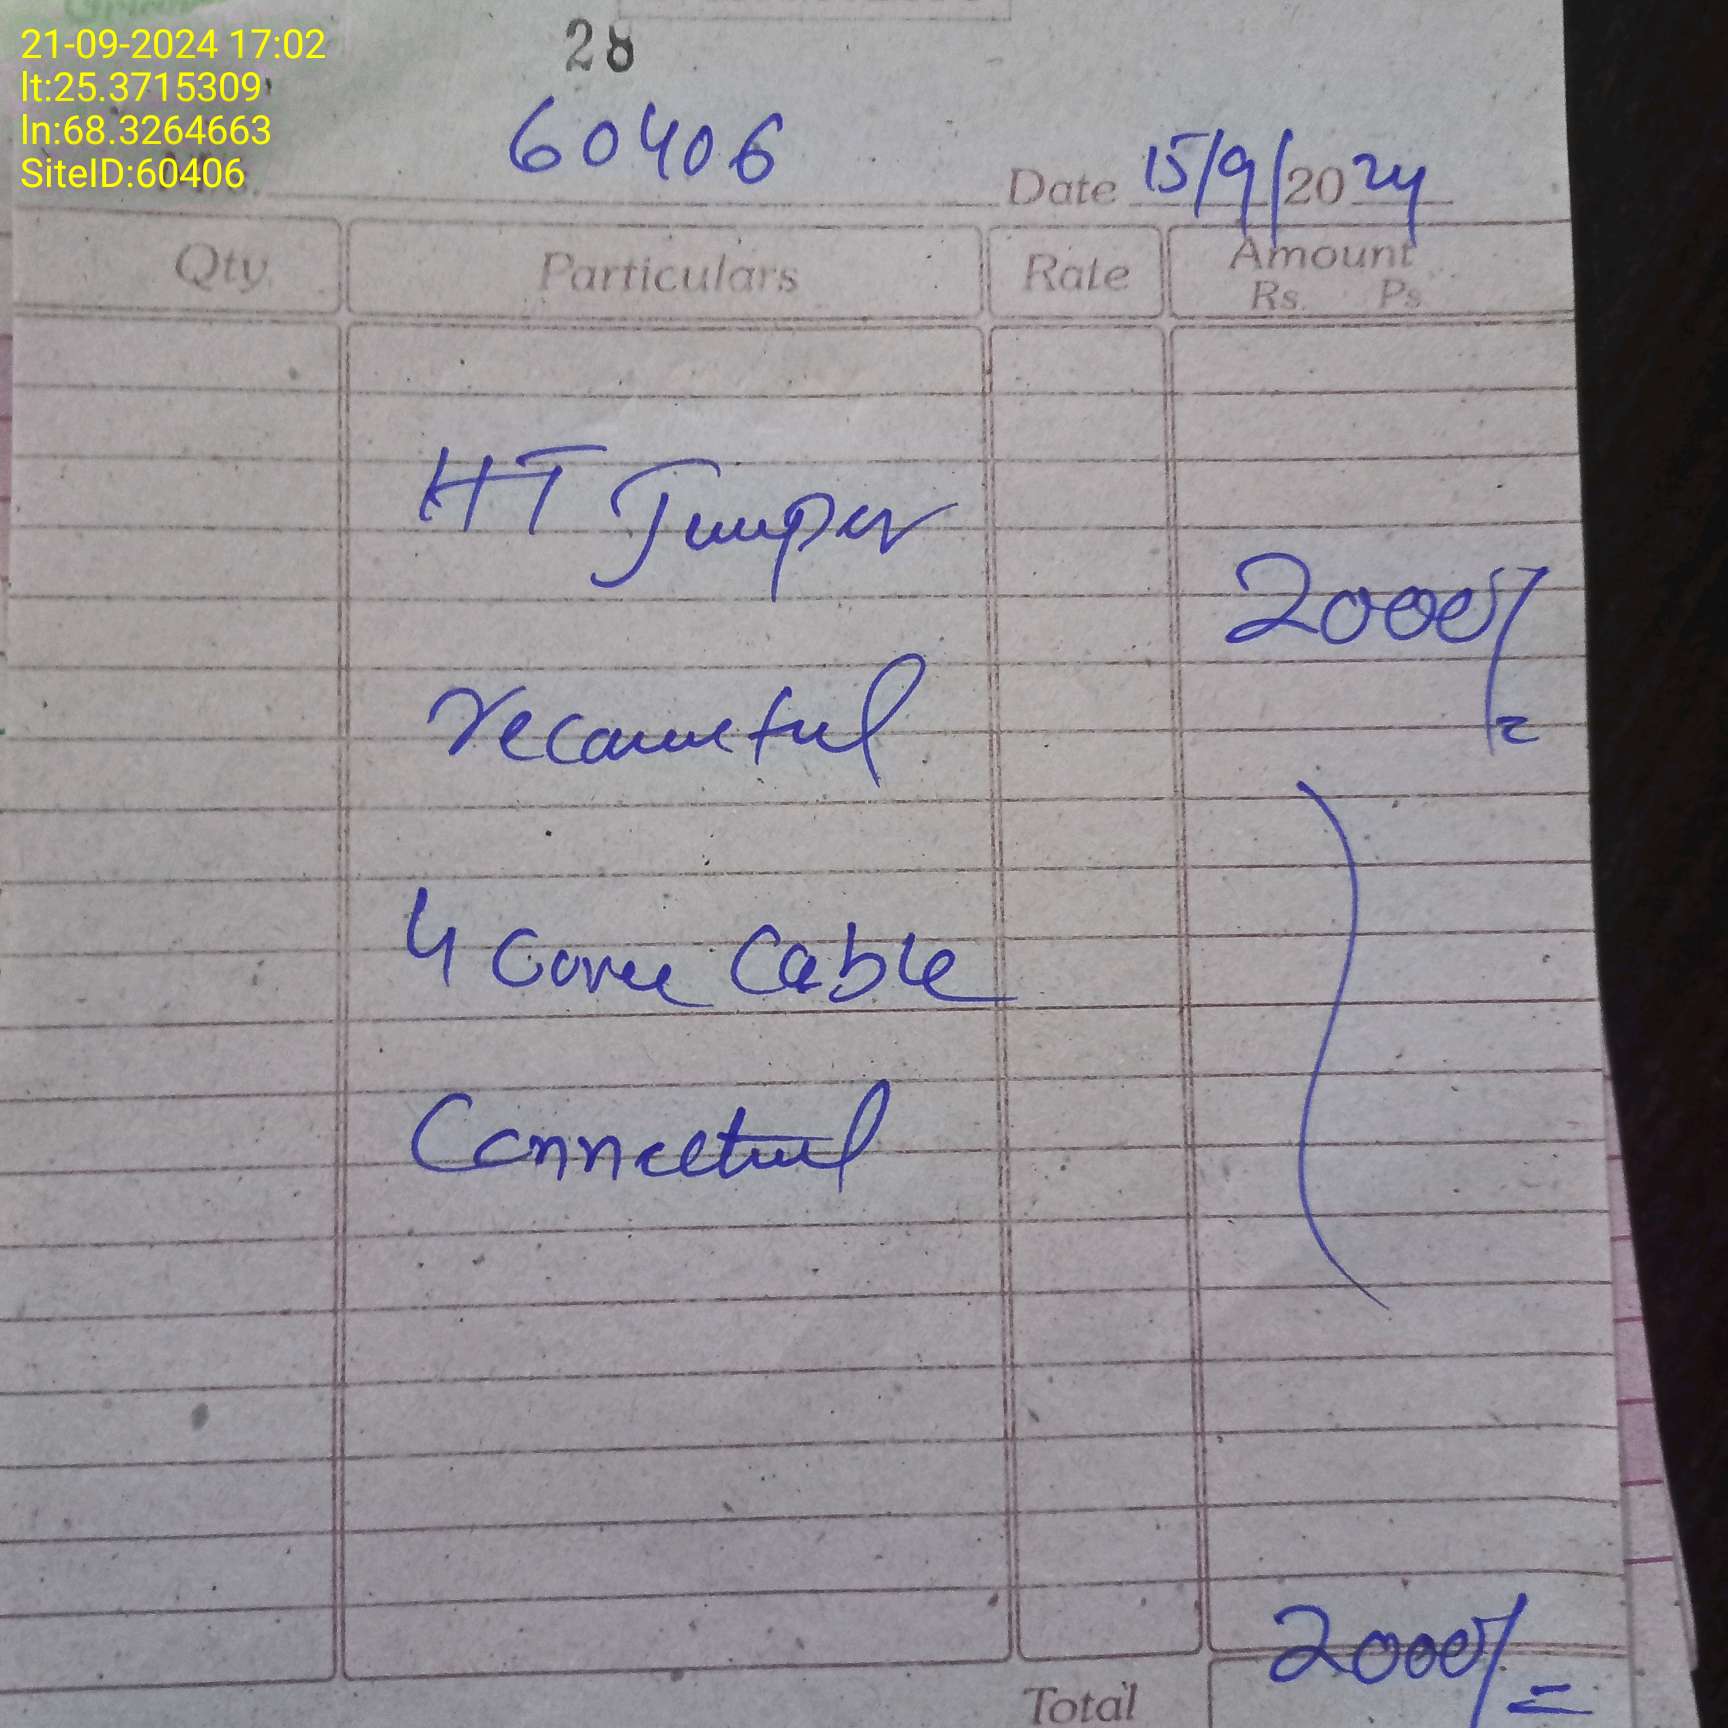 21-09-2024 17:02
lt:25.3715309
ln:68.3264663
SiteID:60406
28
60406
Date 15/9/2024
Qty Particulars Rate Amount
Rs. Ps
HT Jumper
2000/=
reconnected
4 core Cable
Connected
2000/=
Total